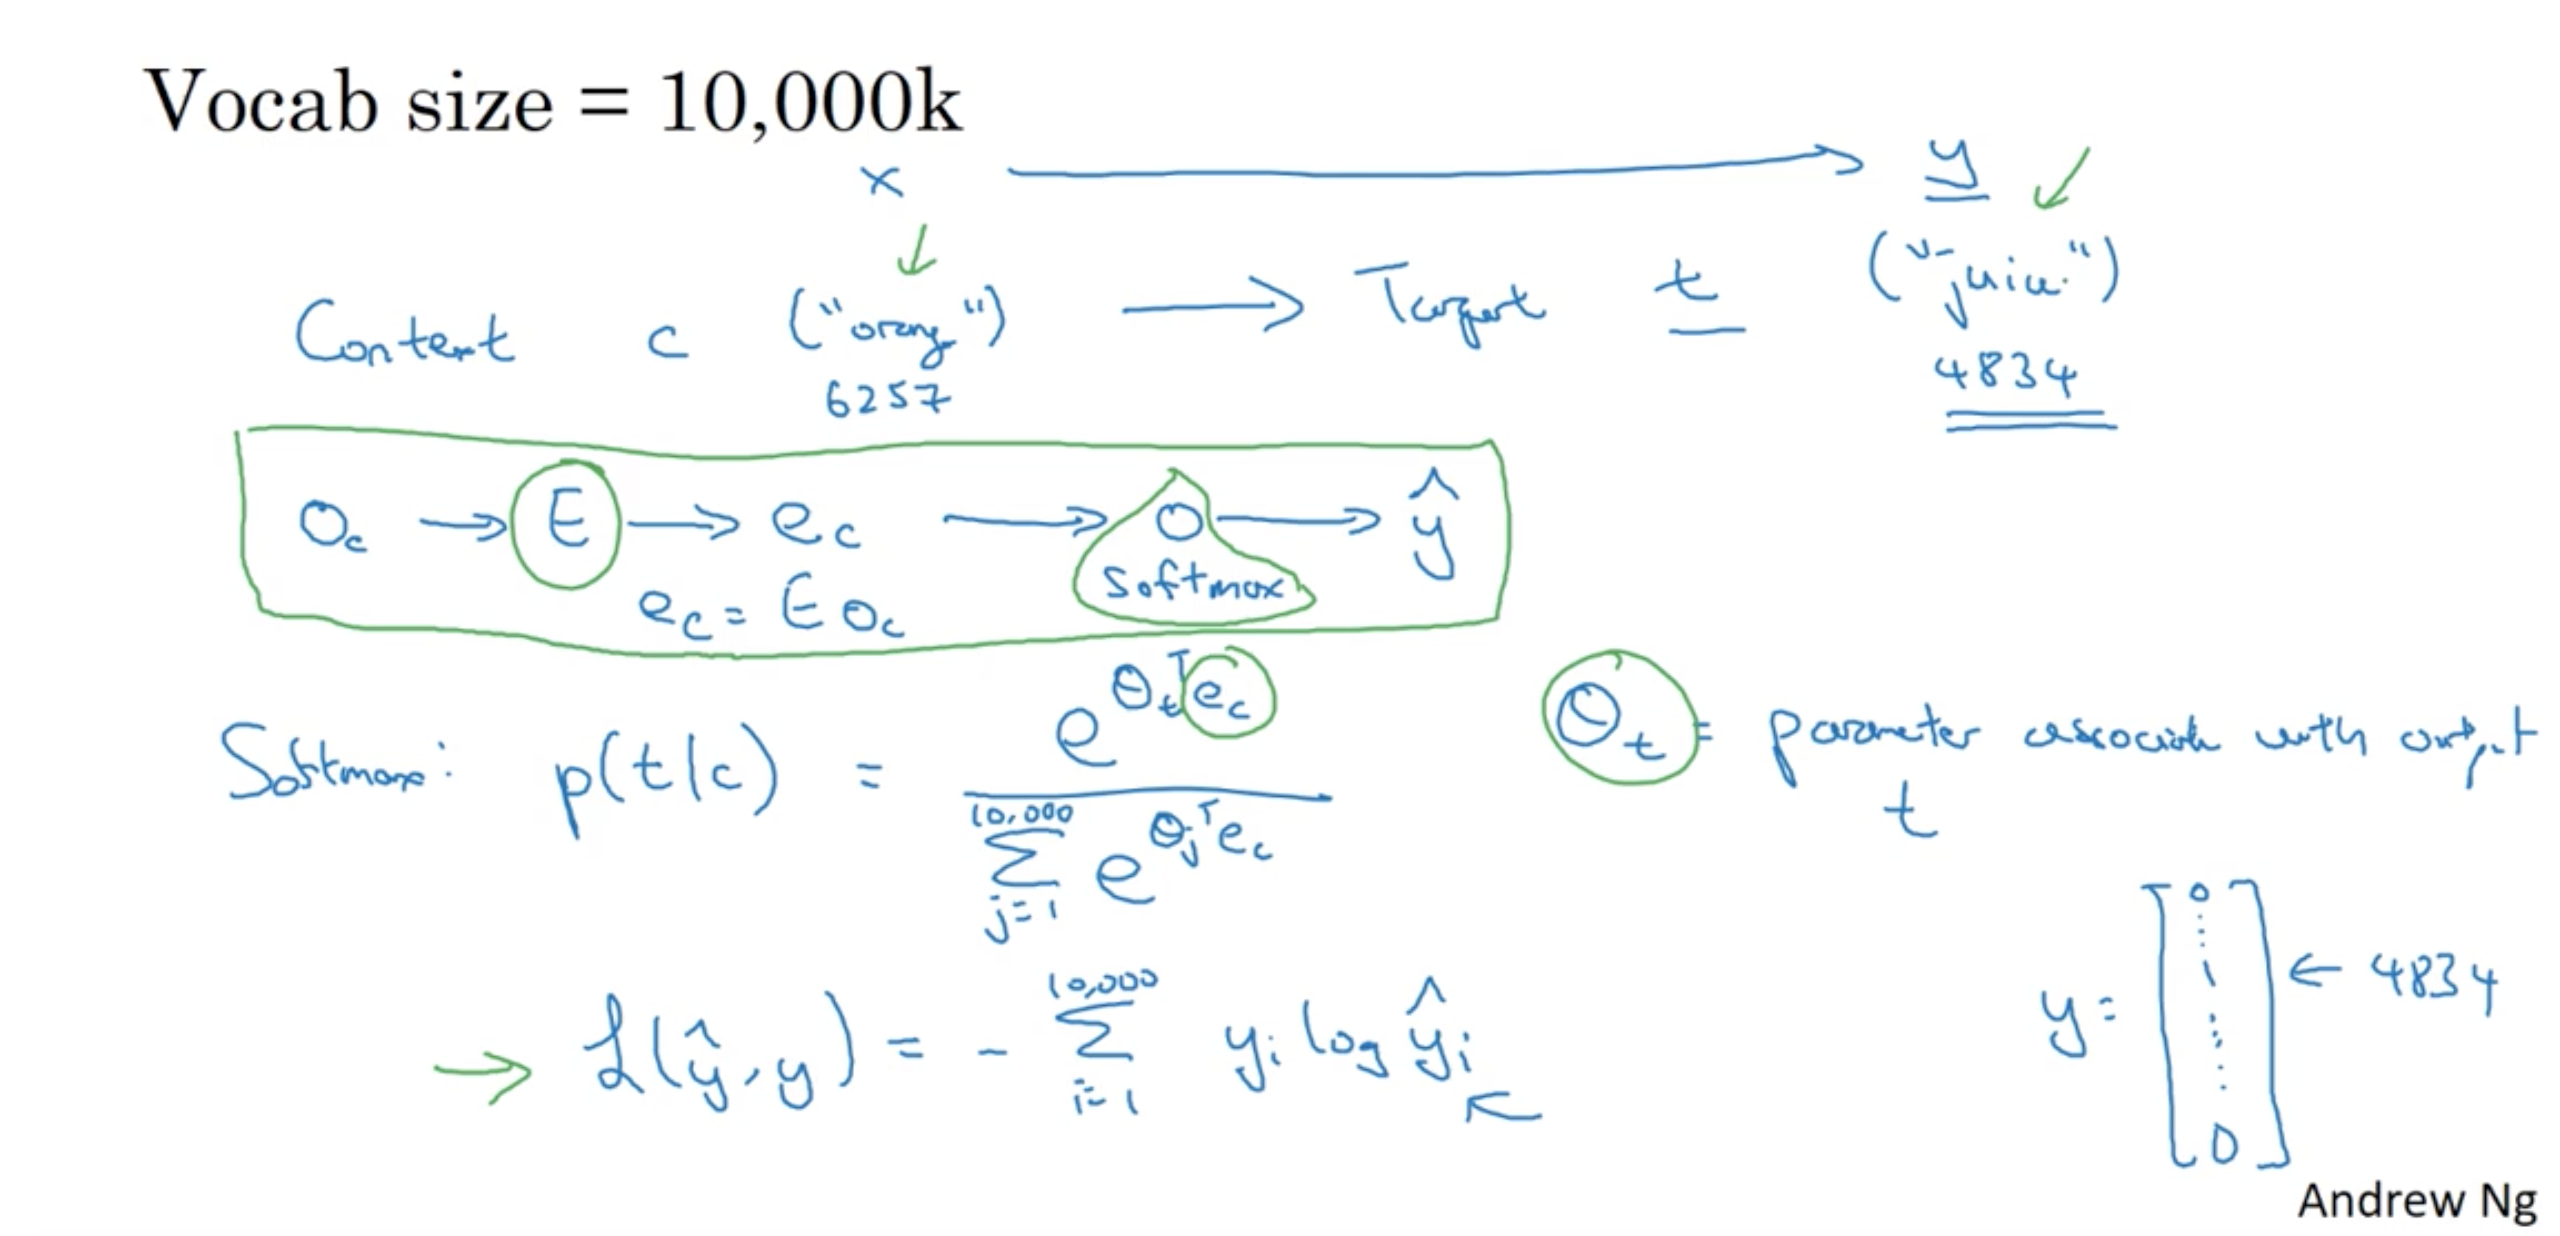 Vocab size = 10,000k
x → y
Context c ("orange") → Target t ("juice")
6257 4834
O_c → E → e_c → O → ŷ
softmax
e_c = E O_c
Softmax: p(t|c) = e^{θ_t^T e_c} / Σ_{j=1}^{10,000} e^{θ_j^T e_c}
θ_t = parameter associate with output
t
ℒ(ŷ, y) = - Σ_{i=1}^{10,000} y_i log ŷ_i
y = [0 ⋮ 1 ⋮ 0] ← 4834
Andrew Ng